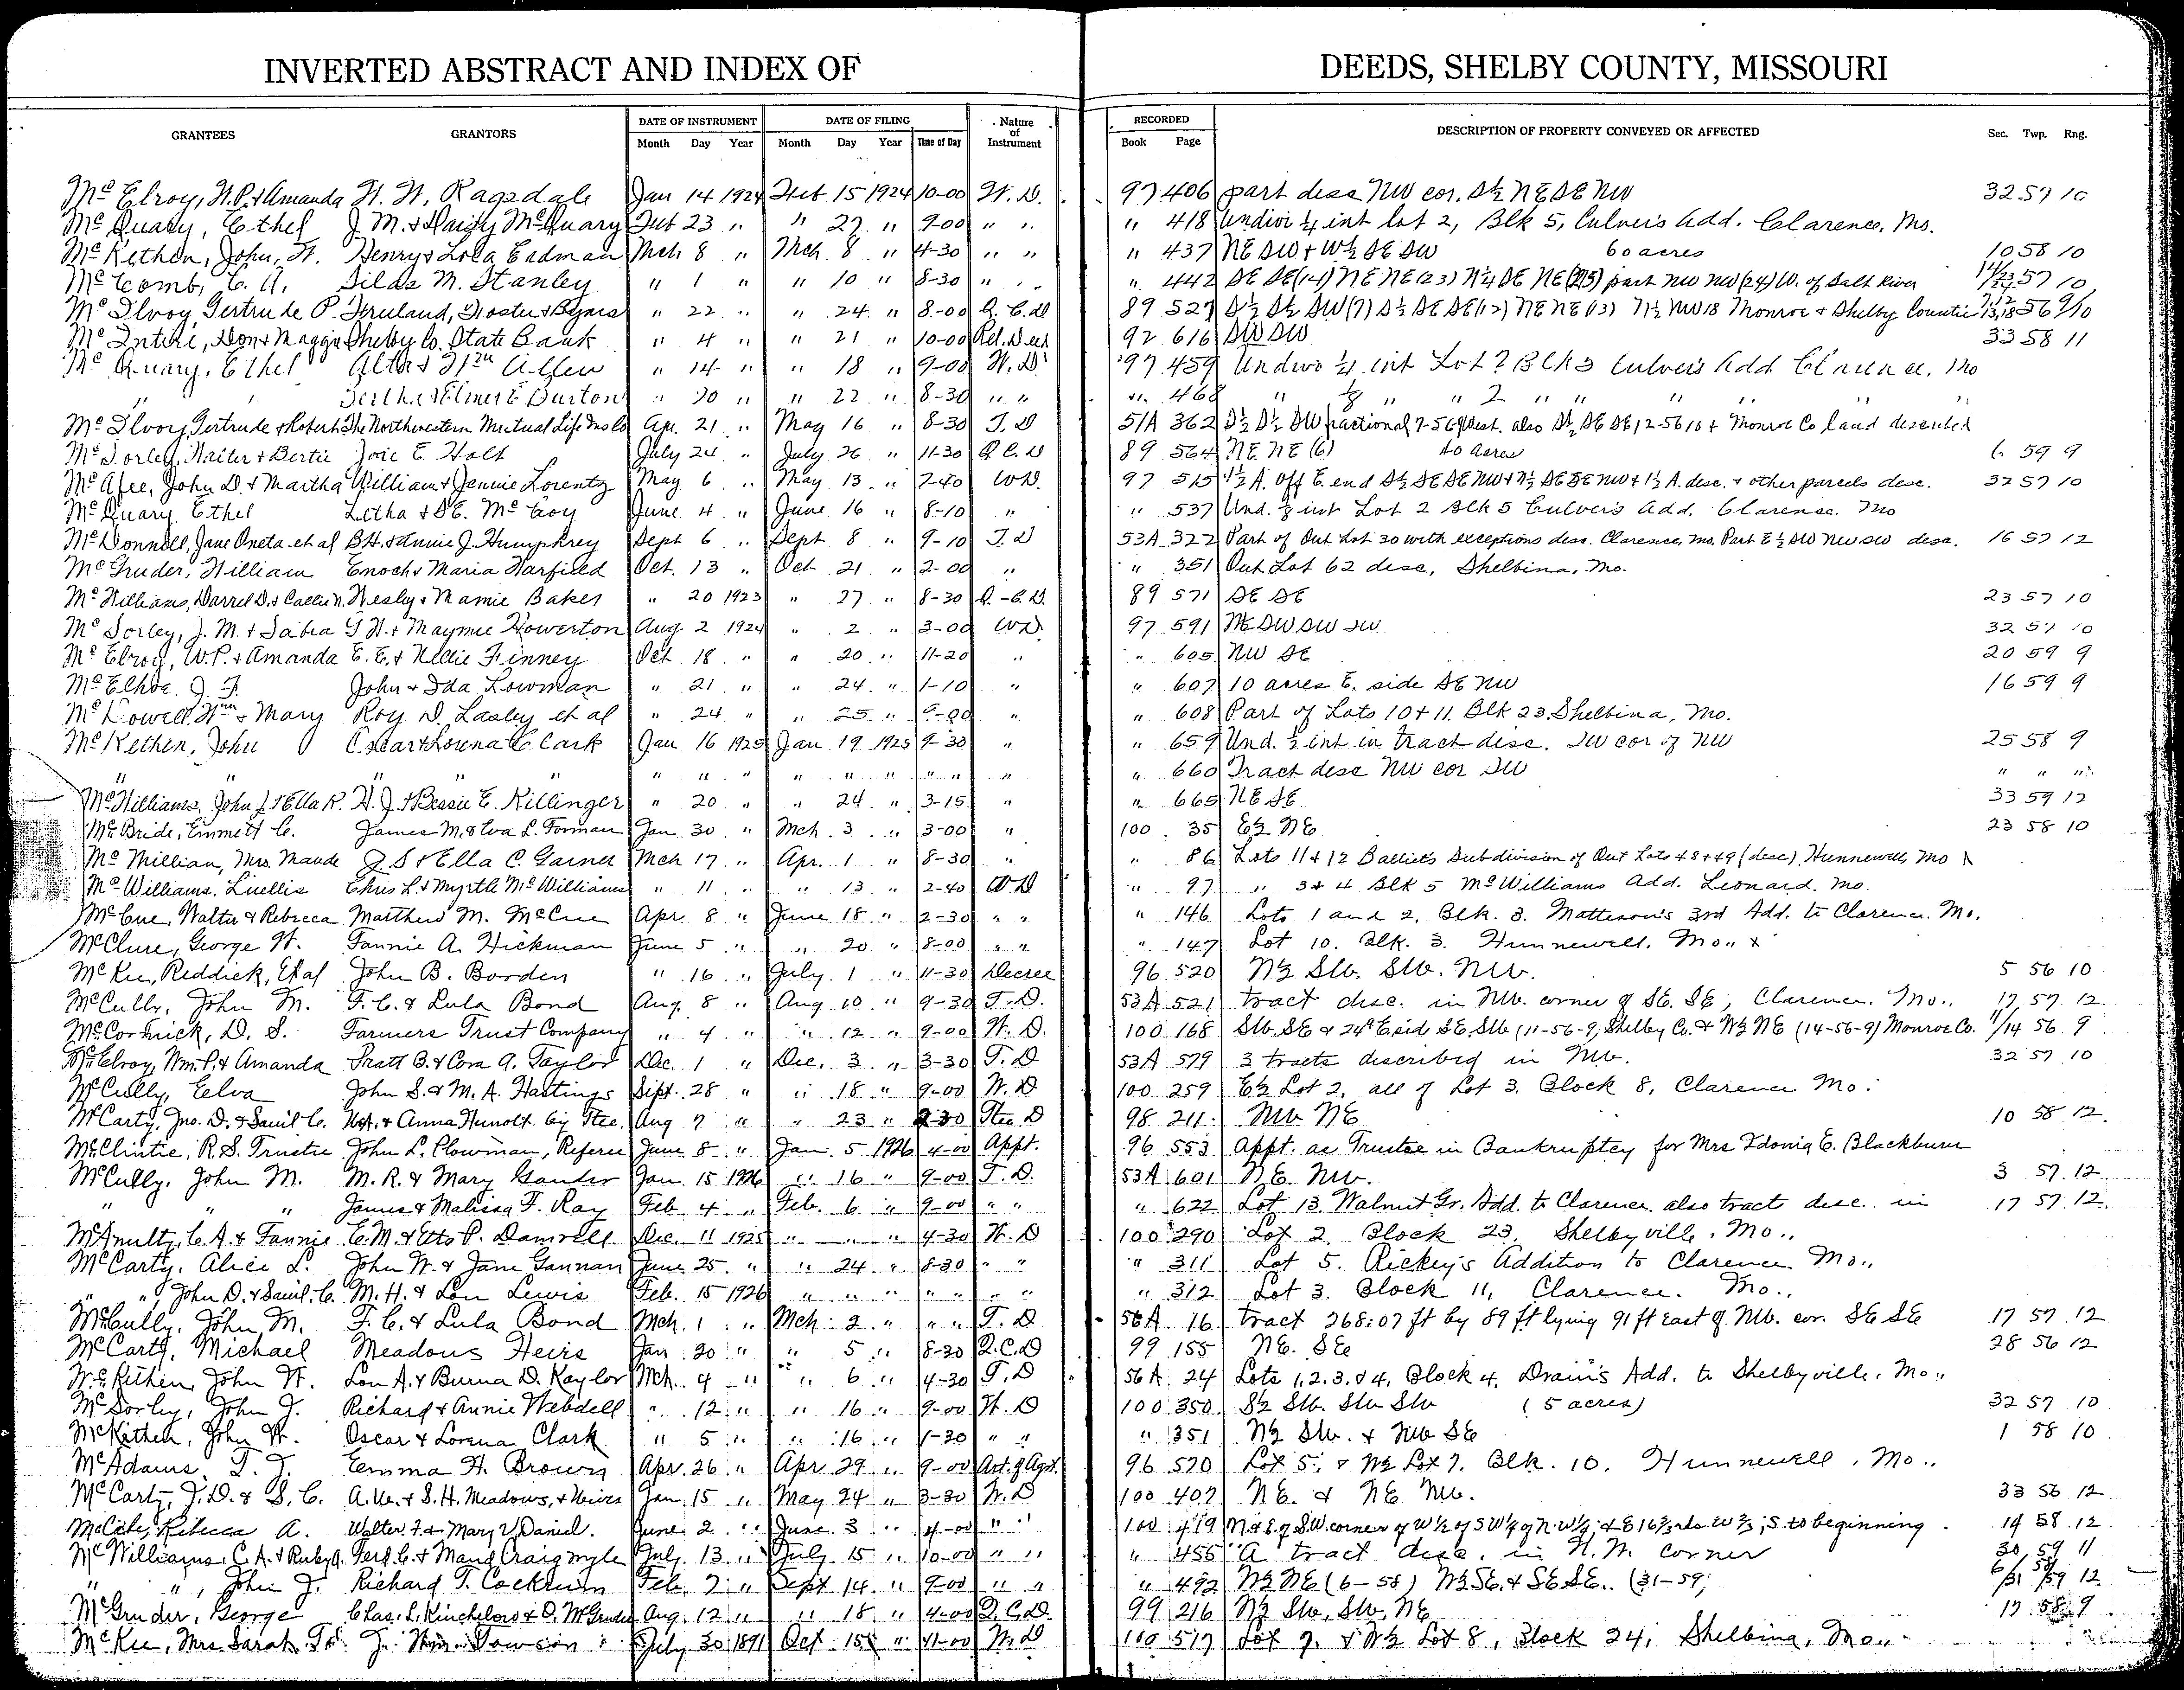 INVERTED ABSTRACT AND INDEX OF DEEDS, SHELBY COUNTY, MISSOURI
GRANTEES GRANTORS DATE OF INSTRUMENT Month Day Year DATE OF FILING Month Day Year Time of Day Nature of Instrument RECORDED Book Page DESCRIPTION OF PROPERTY CONVEYED OR AFFECTED Sec. Twp. Rng.
McElroy, W.P. & Amanda W. W. Ragsdale Jan 14 1924 Feb 15 1924 10-00 W.D. 97 406 part desc NW cor. S½ NE SE NW 32 57 10
McQuary, Ethel J M. & Daisy McQuary Feb 23 " " 27 " 9-00 " " " 418 Undiv ¼ int lot 2, Blk 5, Culver's Add. Clarence, Mo.
McKethen, John, W. Henry & Lola Eadman Mch 8 " Mch 8 " 4-30 " " " 437 NE SW + W½ SE SW 60 acres 10 58 10
McComb, C. A. Silas M. Stanley " 1 " " 10 " 8-30 " " " 442 SE SE (14) NE NE (23) N¼ SE NE (23) part NW NW (24) W. of Salt River 14/23/24 57 10
McIlvoy, Gertrude P. Freeland, Foster & Byars " 22 " " 24 " 8-00 Q.C.D 89 527 S½ S½ SW (7) S½ SE SE (12) NE NE (13) N½ NW 18 Monroe & Shelby Counties 7,12 13,18 56 9/10
McIntire, Don & Maggie Shelby Co. State Bank " 4 " " 21 " 10-00 Rel. Deed 92 616 SW SW 33 58 11
McQuary, Ethel Alta & Wm Allen " 14 " " 18 " 9-00 W.D. 97 459 Undivo ¼ int Lot 2 Blk 5 Culver's Add Clarence, Mo
" " Bertha & Elmer E Burton " 20 " " 22 " 8-30 " " " 468 " ⅛ " " 2 " " " " "
McIlvoy, Gertrude & Robert The Northwestern Mutual Life Ins Co Apr. 21 " May 16 " 8-30 T.D 51A 362 S½ S½ SW fractional 7-56-9 West. also S½ SE SE 12-56 10 + Monroe Co land described
McSorley, Walter & Bertie Josie E. Holt July 24 " July 26 " 11-30 Q.C.D 89 564 NE NE (6) 40 acres 6 59 9
McAfee, John D. & Martha William & Jennie Lorentz May 6 " May 13 " 7-40 WD. 97 515 ½ A. off E. end S½ SE SE NW + N½ SE SE NW + 1½ A. desc. & other parcels desc. 32 57 10
McQuary, Ethel Letha & S.E. McCoy June 4 " June 16 " 8-10 " " 537 Und. ⅛ int Lot 2 Blk 5 Culver's Add, Clarence. Mo
McDonnell, Jane Oneta et al B.H. & Annie J. Humphrey Sept 6 " Sept 8 " 9-10 T.D 53A 322 Part of Out Lot 30 with exceptions desc. Clarence, Mo. Part E½ SW NW SW desc. 16 57 12
McGruder, William Enoch & Maria Warfield Oct. 13 " Oct 21 " 2-00 " " 351 Out Lot 62 desc, Shelbina, Mo.
McWilliams, Darrel D. & Callie N. Wesley & Mamie Baker " 20 1923 " 27 " 8-30 Q.-C.D. 89 571 SE SE 23 57 10
McSorley, J. M. & Sabra G. W. & Maymie Howerton Aug. 2 1924 " 2 " 3-00 WD. 97 591 NE SW SW SW 32 57 10
McElroy, W.P. & Amanda E. E. & Nellie Finney Oct. 18 " " 20 " 11-20 " " 605 NW SE 20 59 9
McElhoe J. F. John & Ida Lowman " 21 " " 24 " 1-10 " " 607 10 acres E. side SE NW 16 59 9
McDowell, Wm & Mary Roy D. Lasley et al " 24 " " 25 " 9-00 " " 608 Part of Lots 10 & 11. Blk 23. Shelbina, Mo.
McKethen, John Oscar & Lorena C. Clark Jan 16 1925 Jan 19 1925 9-30 " " 659 Und. ½ int in tract desc. SW cor of NW 25 58 9
" " " " " " " " " " " " " " 660 Tract desc NW cor SW " " "
McWilliams, John J. & Ella R. W. J. & Bessie E. Killinger " 20 " " 24 " 3-15 " " 665 NE SE 33 59 12
McBride, Emmett C. James M. & Eva L. Forman Jan 30 " Mch 3 " 3-00 " 100 35 E½ NE 23 58 10
McMillian, Mrs Maude J. S & Ella C. Garner Mch 17 " Apr. 1 " 8-30 " " 86 Lots 11 & 12 Balliet's Subdivision of Out Lots 48 & 49 (desc). Hunnewell, Mo
McWilliams, Luellis Chris L. & Myrtle McWilliams " 11 " " 13 " 2-40 WD " 97 " 3 & 4 Blk 5 McWilliams Add. Leonard. Mo.
McCue, Walter & Rebecca Matthew M. McCue Apr. 8 " June 18 " 2-30 " " " 146 Lots 1 and 2, Blk. 3. Matteson's 3rd Add. to Clarence Mo.
McClure, George W. Fannie A. Hickman June 5 " " 20 " 8-00 " " " 147 Lot 10. Blk. 3. Hunnewell, Mo.,
McKee, Reddick, Et al John B. Borden " 16 " July 1 " 11-30 Decree 96 520 N½ SW. SW. NW. 5 56 10
McCully, John M. F. C. & Lula Bond Aug. 8 " Aug 10 " 9-30 T.D. 53A 521 tract desc. in NW. corner of SE. SE, Clarence, Mo., 17 57 12
McCormick, D. S. Farmers Trust Company " 4 " " 12 " 9-00 W.D. 100 168 SW. SE & 24a E. sid SE. SW (11-56-9) Shelby Co. & N½ NE (14-56-9) Monroe Co. 11/14 56 9
McElroy, Wm. P. & Amanda Pratt B. & Cora A. Taylor Dec. 1 " Dec. 3 " 3-30 T.D 53A 579 3 tracts described in NW. 32 57 10
McCully, Elva John S. & M. A. Hastings Sept. 28 " " 18 " 9-00 W.D 100 259 E½ Lot 2, all of Lot 3. Block 8, Clarence Mo.
McCarty, Jno. D. & Saml C. & Anna Hunolt by Stee. Aug 7 " " 23 " 2-30 Stee D 98 211 NW NE 10 58 12
McClintic, R. S. Trustee John L. Plowman, Referee June 8 " Jan 5 1926 4-00 Appt. 96 553 Appt. as Trustee in Bankruptcy for Mrs Idonia E. Blackburn
McCully, John M. M. R. & Mary Gander Jan. 15 1926 " 16 " 9-00 T.D. 53A 601 NE. NW. 3 57 12
" " " James & Malissa F. Ray Feb. 4 " Feb. 6 " 9-00 " " " 622 Lot 13. Walnut Gr. Add. to Clarence also tract desc. in 17 57 12
McAnulty, C. A. & Fannie E. M. & Etta P. Damrell Dec. 11 1925 " " " 4-30 W.D 100 290 Lot 2 Block 23, Shelbyville, Mo.,
McCarty, Alice L. John W. & Jane Gannan June 25 " " 24 " 8-30 " " " 311 Lot 5. Rickey's Addition to Clarence Mo.,
" ", John D. & Saml. C. M. H. & Lou Lewis Feb. 15 1926 " " " " " " " " 312 Lot 3. Block 11, Clarence. Mo.,
McCully, John M. F. C. & Lula Bond Mch. 1 " Mch. 2 " " " T.D 56A 16 tract 268.07 ft by 89 ft lying 91 ft East of NW. cor. SE SE 17 57 12
McCarty, Michael Meadows Heirs Jan 20 " " 5 " 8-30 Q.C.D 99 155 NE. SE 28 56 12
McKethen, John W. Lon A. & Burna D. Kaylor Mch. 4 " " 6 " 4-30 T.D 56A 24 Lots 1,2,3,&4, Block 4, Drain's Add. to Shelbyville, Mo.,
McSorley, John J. Richard & Annie Webdell " 12 " " 16 " 9-00 W.D 100 350 S½ SW. SW SW (5 acres) 32 57 10
McKethen, John W. Oscar & Lorena Clark " 5 " " 16 " 1-30 " " " 351 N½ SW. & NW SE 1 58 10
McAdams, T. J. Emma H. Brown Apr. 26 " Apr 29 " 9-00 Art. of Agst. 96 570 Lot 5, & W½ Lot 7. Blk. 10. Hunnewell, Mo.,
McCarty, J. D. & S. C. & S. H. Meadows, & Heirs Jan. 15 " May 24 " 3-30 W.D 100 407 NE. & NE NW. 33 56 12
Rebecca A. Walter F. & Mary V Daniel. June 2 " June 3 " 4-00 " " 100 419 N & E of S.W. corner of W½ of SW¼ of N.W¼; S. to beginning. 14 58 12
McWilliams, C. A. & Ruby A. Ferd C. & Maud Craigmyle July 13 " July 15 " 10-00 " " " 455 A tract desc. in N.W. corner 30 59 11
" ", John J. Richard T. Cockrum Feb. 2 " Sept 14 " 9-00 " " " 492 N½ NE (6-58) N½ SE. & SE SE. (31-59) 6/31 58/59 12
McGruder, George Chas. L. Kinchelors & O. McGruder Aug. 12 " " 18 " 4-00 Q.C.D. 99 216 N½ SW, SW, NE 17 58 9
McKee, Mrs Sarah J. Wm. Towson July 30 1891 Oct 15 " 11-00 W.D 100 517 Lot 7. & N½ Lot 8, Block 24, Shelbina, Mo.,